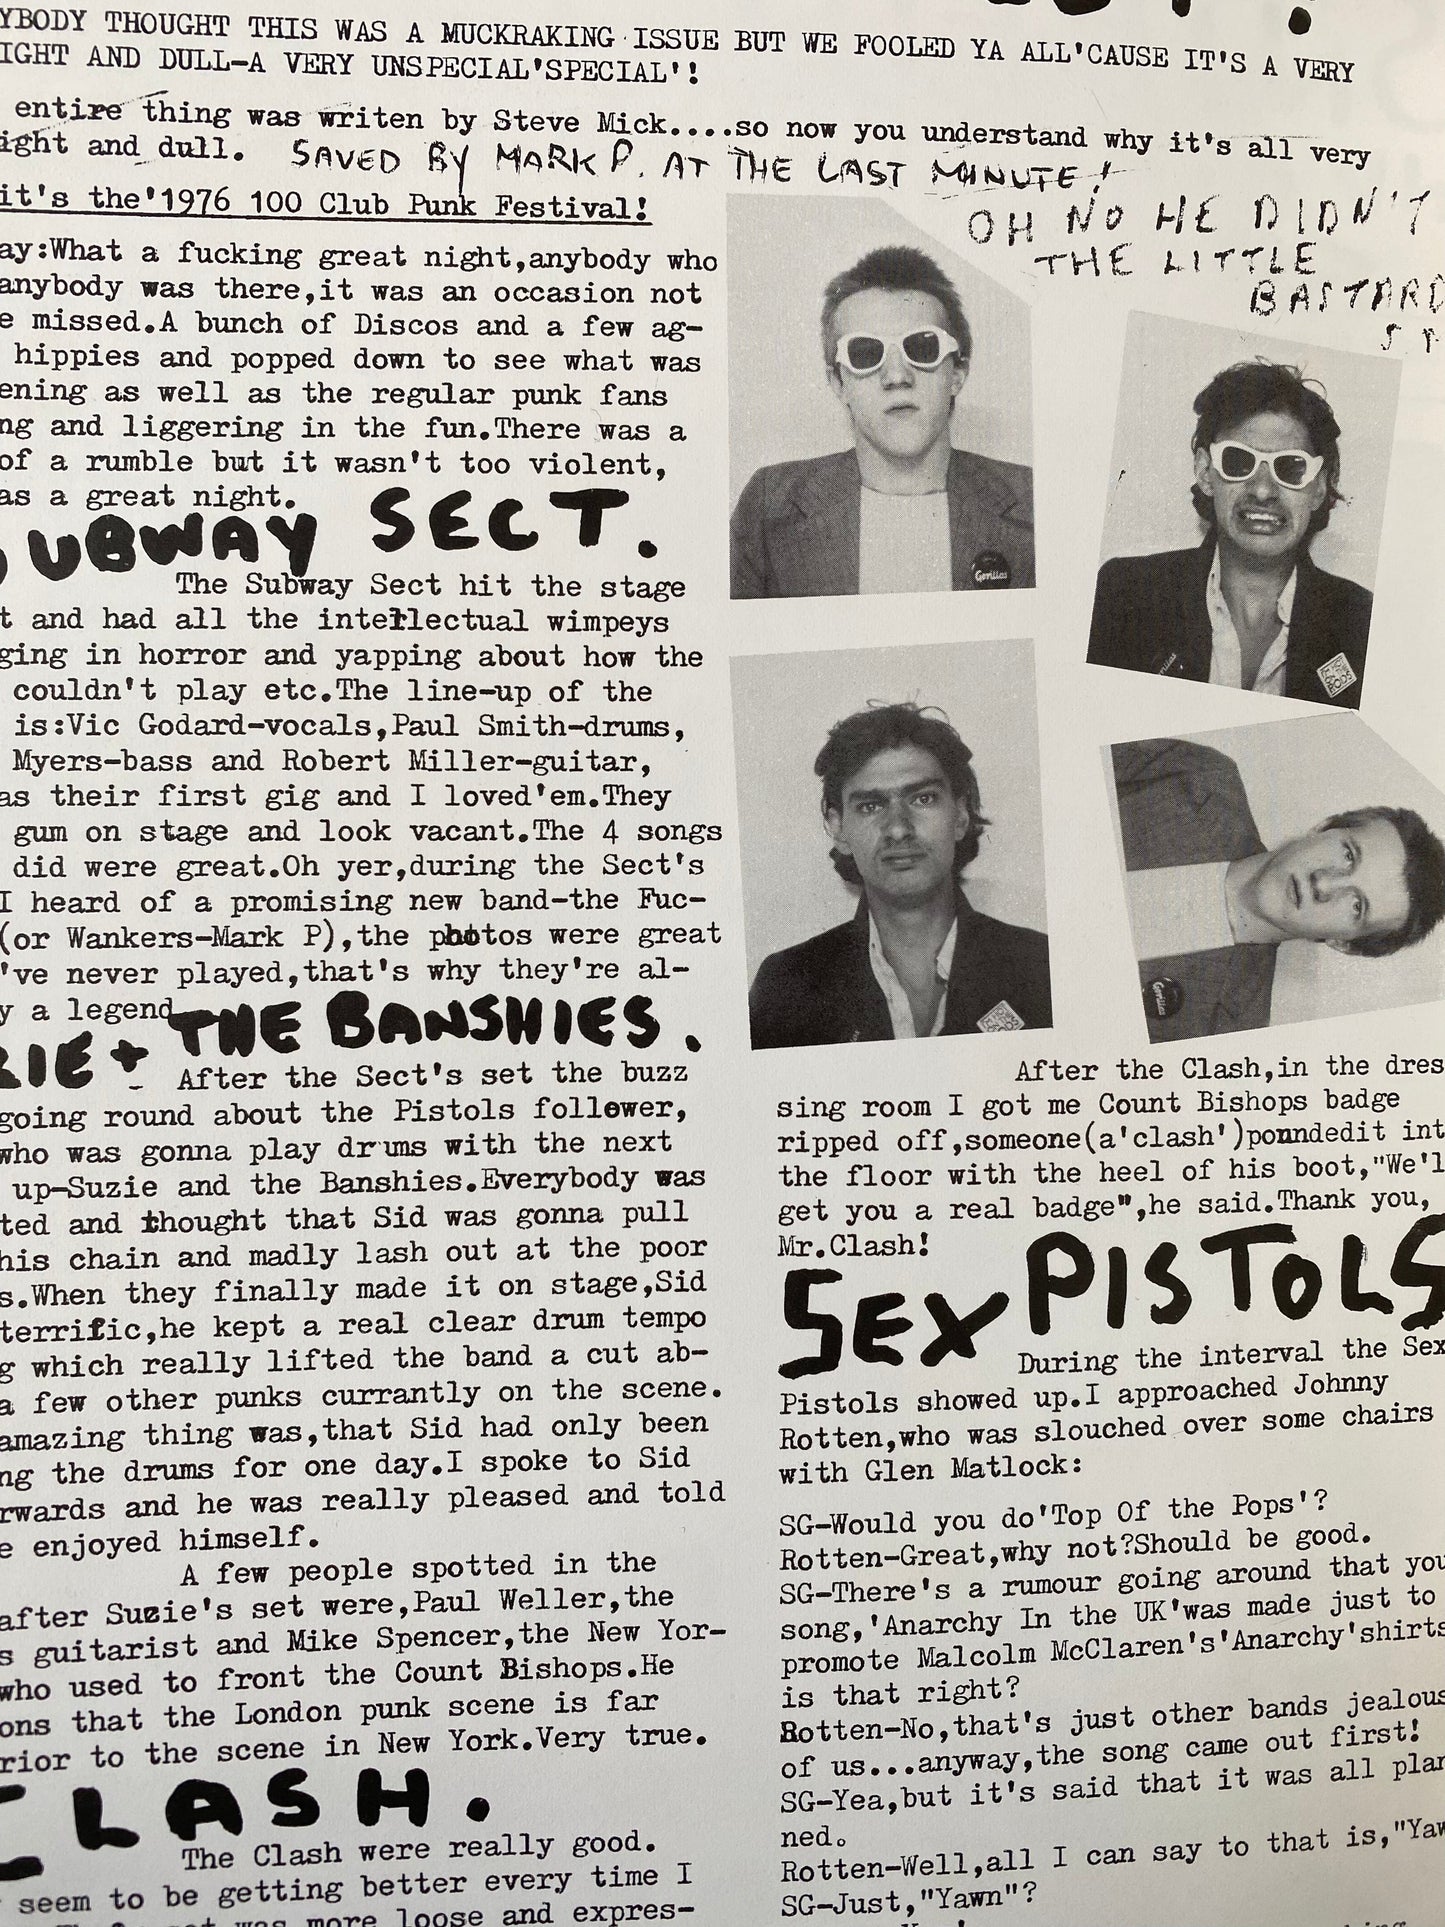 YBODY THOUGHT THIS WAS A MUCKRAKING ISSUE BUT WE FOOLED YA ALL'CAUSE IT'S A VERY
IGHT AND DULL-A VERY UNSPECIAL'SPECIAL'!
entire thing was writen by Steve Mick....so now you understand why it's all very
ight and dull. SAVED BY MARK P. AT THE LAST MINUTE!
OH NO HE DIDN'T
THE LITTLE
BASTARD
it's the'1976 100 Club Punk Festival!
ay:What a fucking great night,anybody who
anybody was there,it was an occasion not
e missed.A bunch of Discos and a few ag-
hippies and popped down to see what was
ening as well as the regular punk fans
ng and liggering in the fun.There was a
of a rumble but it wasn't too violent,
as a great night.
UBWAY SECT.
The Subway Sect hit the stage
t and had all the intellectual wimpeys
ging in horror and yapping about how the
couldn't play etc.The line-up of the
is:Vic Godard-vocals,Paul Smith-drums,
Myers-bass and Robert Miller-guitar,
as their first gig and I loved'em.They
gum on stage and look vacant.The 4 songs
did were great.Oh yer,during the Sect's
I heard of a promising new band-the Fuc-
(or Wankers-Mark P),the photos were great
've never played,that's why they're al-
y a legend
ZIE + THE BANSHIES.
After the Sect's set the buzz
going round about the Pistols follower,
who was gonna play drums with the next
up-Suzie and the Banshies.Everybody was
ted and thought that Sid was gonna pull
his chain and madly lash out at the poor
s.When they finally made it on stage,Sid
terrific,he kept a real clear drum tempo
g which really lifted the band a cut ab-
a few other punks currantly on the scene.
amazing thing was,that Sid had only been
ng the drums for one day.I spoke to Sid
rwards and he was really pleased and told
e enjoyed himself.
A few people spotted in the
after Suzie's set were,Paul Weller,the
s guitarist and Mike Spencer,the New Yor-
who used to front the Count Bishops.He
ons that the London punk scene is far
rior to the scene in New York.Very true.
CLASH.
The Clash were really good.
seem to be getting better every time I
was more loose and expres-
Gorillas
Gorillas
After the Clash,in the dres
sing room I got me Count Bishops badge
ripped off,someone(a'clash')ponndedit int
the floor with the heel of his boot,"We'l
get you a real badge",he said.Thank you,
Mr.Clash!
SEX PISTOLS
During the interval the Sex
Pistols showed up.I approached Johnny
Rotten,who was slouched over some chairs
with Glen Matlock:
SG-Would you do'Top Of the Pops'?
Rotten-Great,why not?Should be good.
SG-There's a rumour going around that you
song,'Anarchy In the UK'was made just to
promote Malcolm McClaren's'Anarchy'shirts
is that right?
Rotten-No,that's just other bands jealous
of us...anyway,the song came out first!
SG-Yea,but it's said that it was all plan
ned.
Rotten-Well,all I can say to that is,"Yaw
SG-Just,"Yawn"?